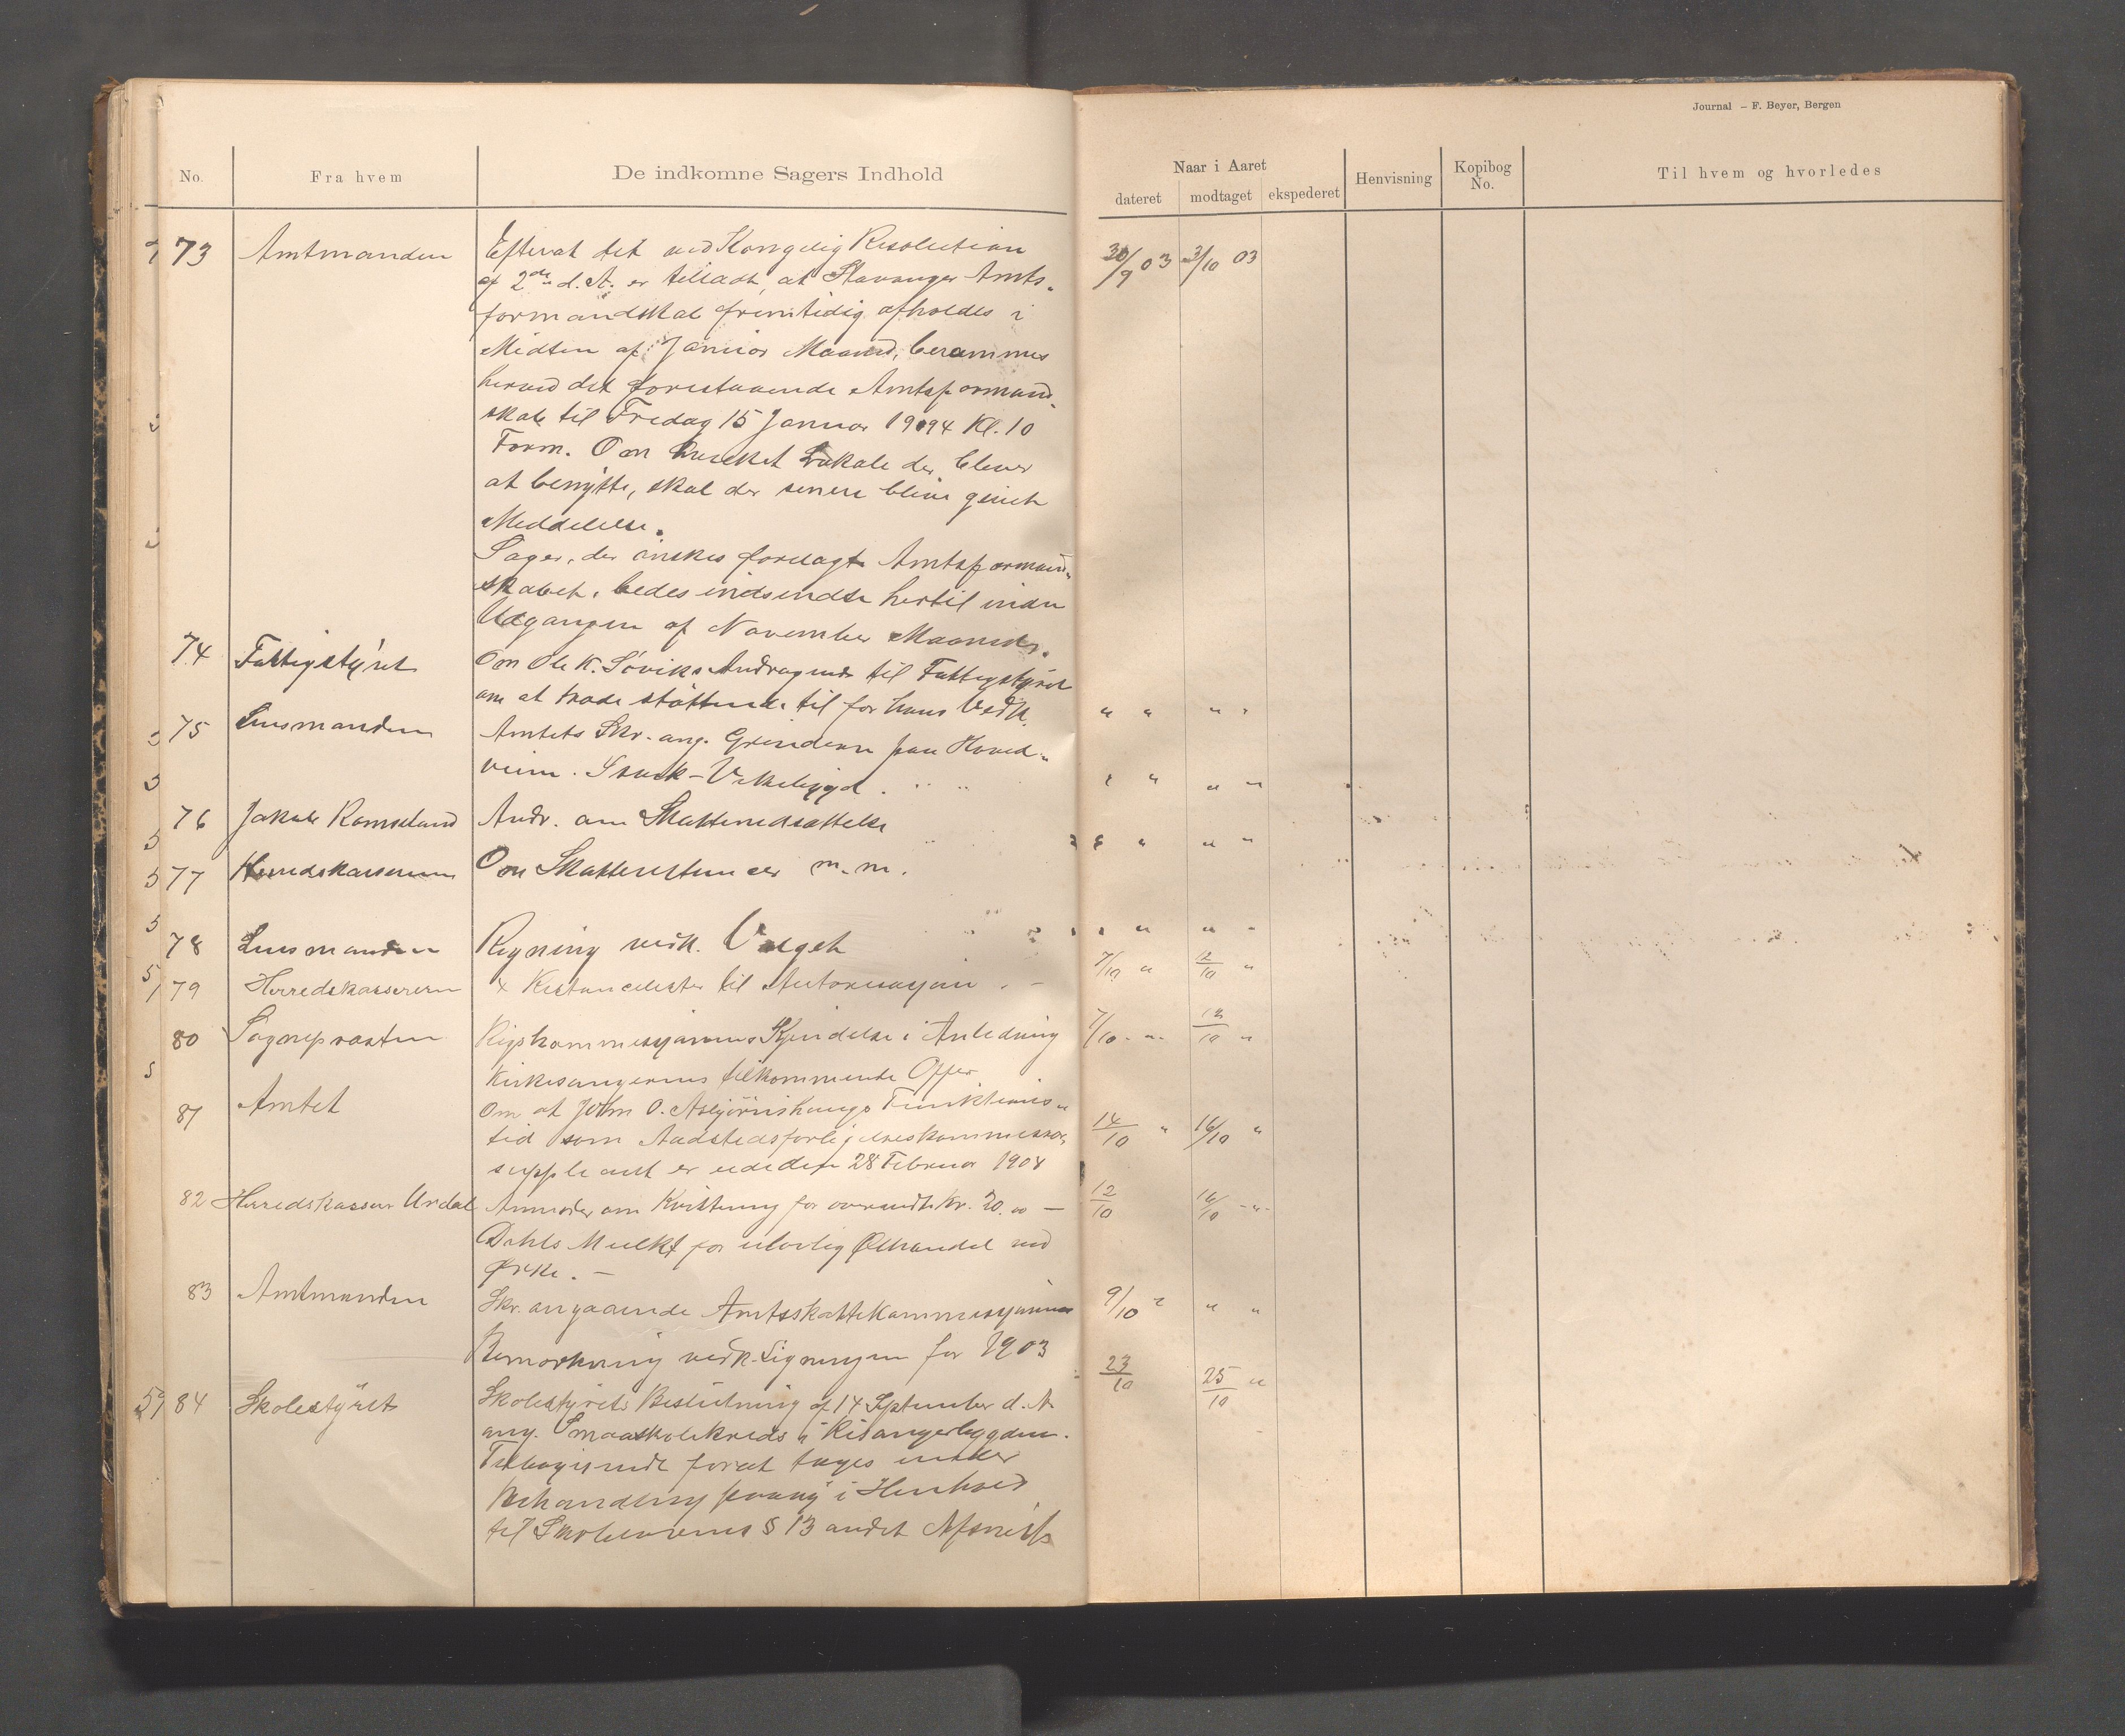 Journal – F. Beyer, Bergen
No. Fra hvem De indkomne Sagers Indhold Naar i Aaret Henvisning Kopibog No. Til hvem og hvorledes
dateret modtaget ekspederet
73 Amtmanden Efterat det ved Kongelig Resolution 30/9 03 3/10 03
af 2den d. A. er tilladt, at Stavanger Amts-
formandskab fremtidig afholdes i
Midten af Januar Maaned, berammes
herved det forestaaende Amtsformand-
skab til Fredag 15 Januar 1904 Kl. 10
Form. Om hvilket Lokale der bliver
at benytte, skal der senere blive givet
Meddelelse.
Sager, der ønskes forelagt Amtsformand-
skabet, bedes indsendte hertil inden
Udgangen af November Maaned.
74 Fattigstyret Om Ole K. Søviks Andragende til Fattigstyret
om at træde støttende til for hans Vedk. " " " "
75 Lensmanden Amtets Skr. ang. Grinderne paa Hoved-
veien. Svuck-Vikebygd. " " " "
76 Jakob Ramseland Andr. om Skattenedsættelse " " " "
77 Herredskasseren Om Skatterestancer m.m.
78 Lensmanden Regning vedk. Vægeth " " " "
79 Herredskassereren x Restancelister til Autorisasjon. – 7/10 " 12/10 "
80 Sognepræsten Rigskommissjonens Kjendelse i Anledning 7/10 - " - 12/10 "
Kirkesangerens tilkommende Offer
81 Amtet Om at John O. Asbjørnshaugs Funktions-
tid som Audstedsforligelseskommissær- 14/10 " 16/10 "
suppleant er ude den 28 Februar 1904
82 Herredskasser Urdal Anmoder om Kvittering for oversendte Kr. 20.00 – 12/10 16/10 - " -
Dahls Mulkt for ulovlig Ølhandel ved
Ørke. –
83 Amtmanden Skr. angaaende Amtsskattekommissjonens 9/10 " " "
Bemærkning vedk. Ligningen for 1903
84 Skolestyret Skolestyrets Beslutning af 14 September d. A. 23/10 25/10 "
ang. Smaaskolekreds i Risangerbygden.
Tilbagesendt forat tages under
Behandling paany i Henhold
til Skolelovens § 13 andet Afsnit